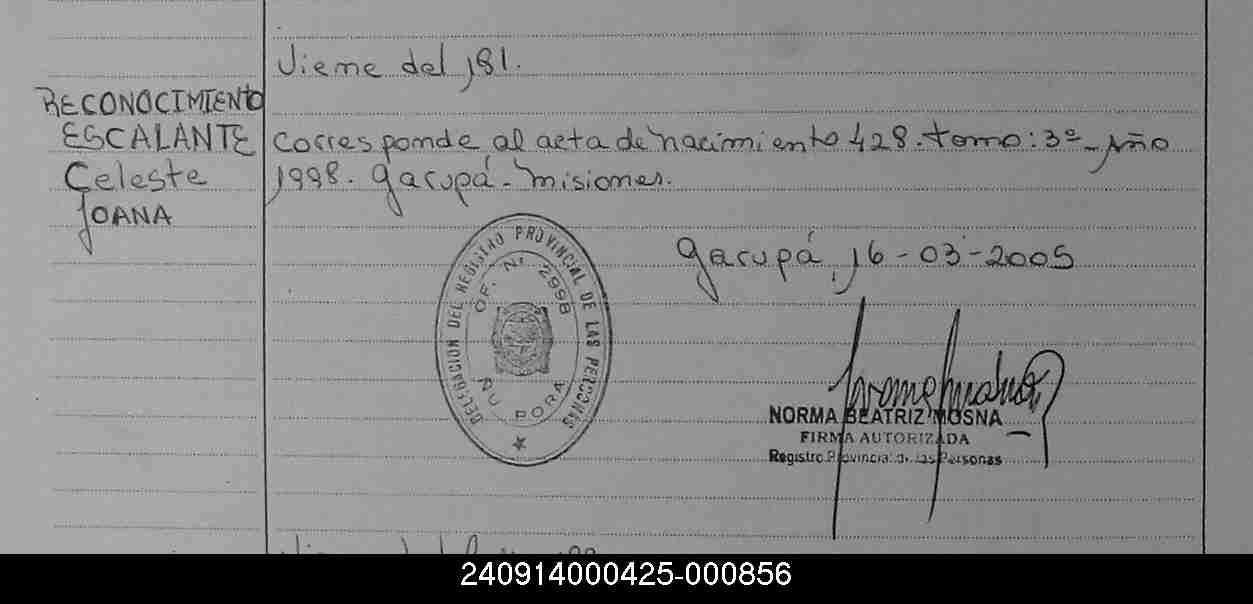 Viene del 181.
RECONOCIMIENtO
ESCALANTE
Celeste
JOANA
Corresponde al acta de nacimiento 428. tomo: 3º - Año
1998. Garupá - Misiones.
Garupá, 16-03-2005
DELEGACION DEL REGISTRO PROVINCIAL DE LAS PERSONAS
OF. Nº 2998
ÑU PORA
NORMA BEATRIZ MOSNA
FIRMA AUTORIZADA
Registro Provincial de las Personas
240914000425-000856